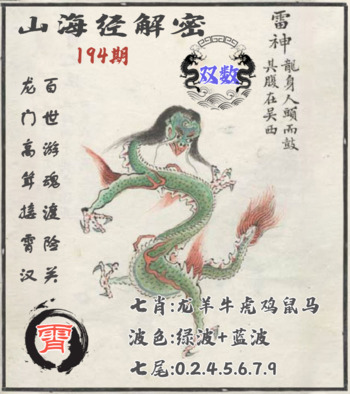 山海经解密
194期
双数
雷神 龍身人頭而鼓
其腹在吴西
百世游魂渡险关
龙门高耸接霄汉
霄
七肖:龙羊牛虎鸡鼠马
波色:绿波+蓝波
七尾:0.2.4.5.6.7.9